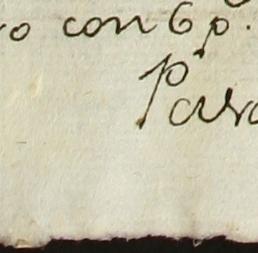 ro con 6 p.
Para